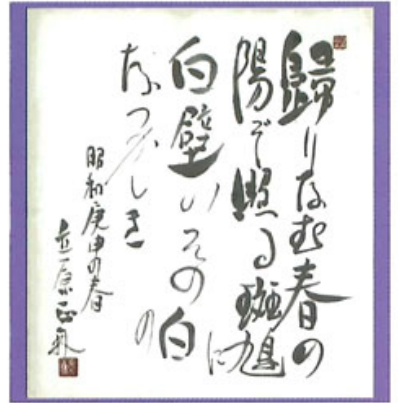 歸りなむ春の
陽ぞ照る斑鳩に
白壁いその白の
なつかしき
昭和庚申の春
立原正秋